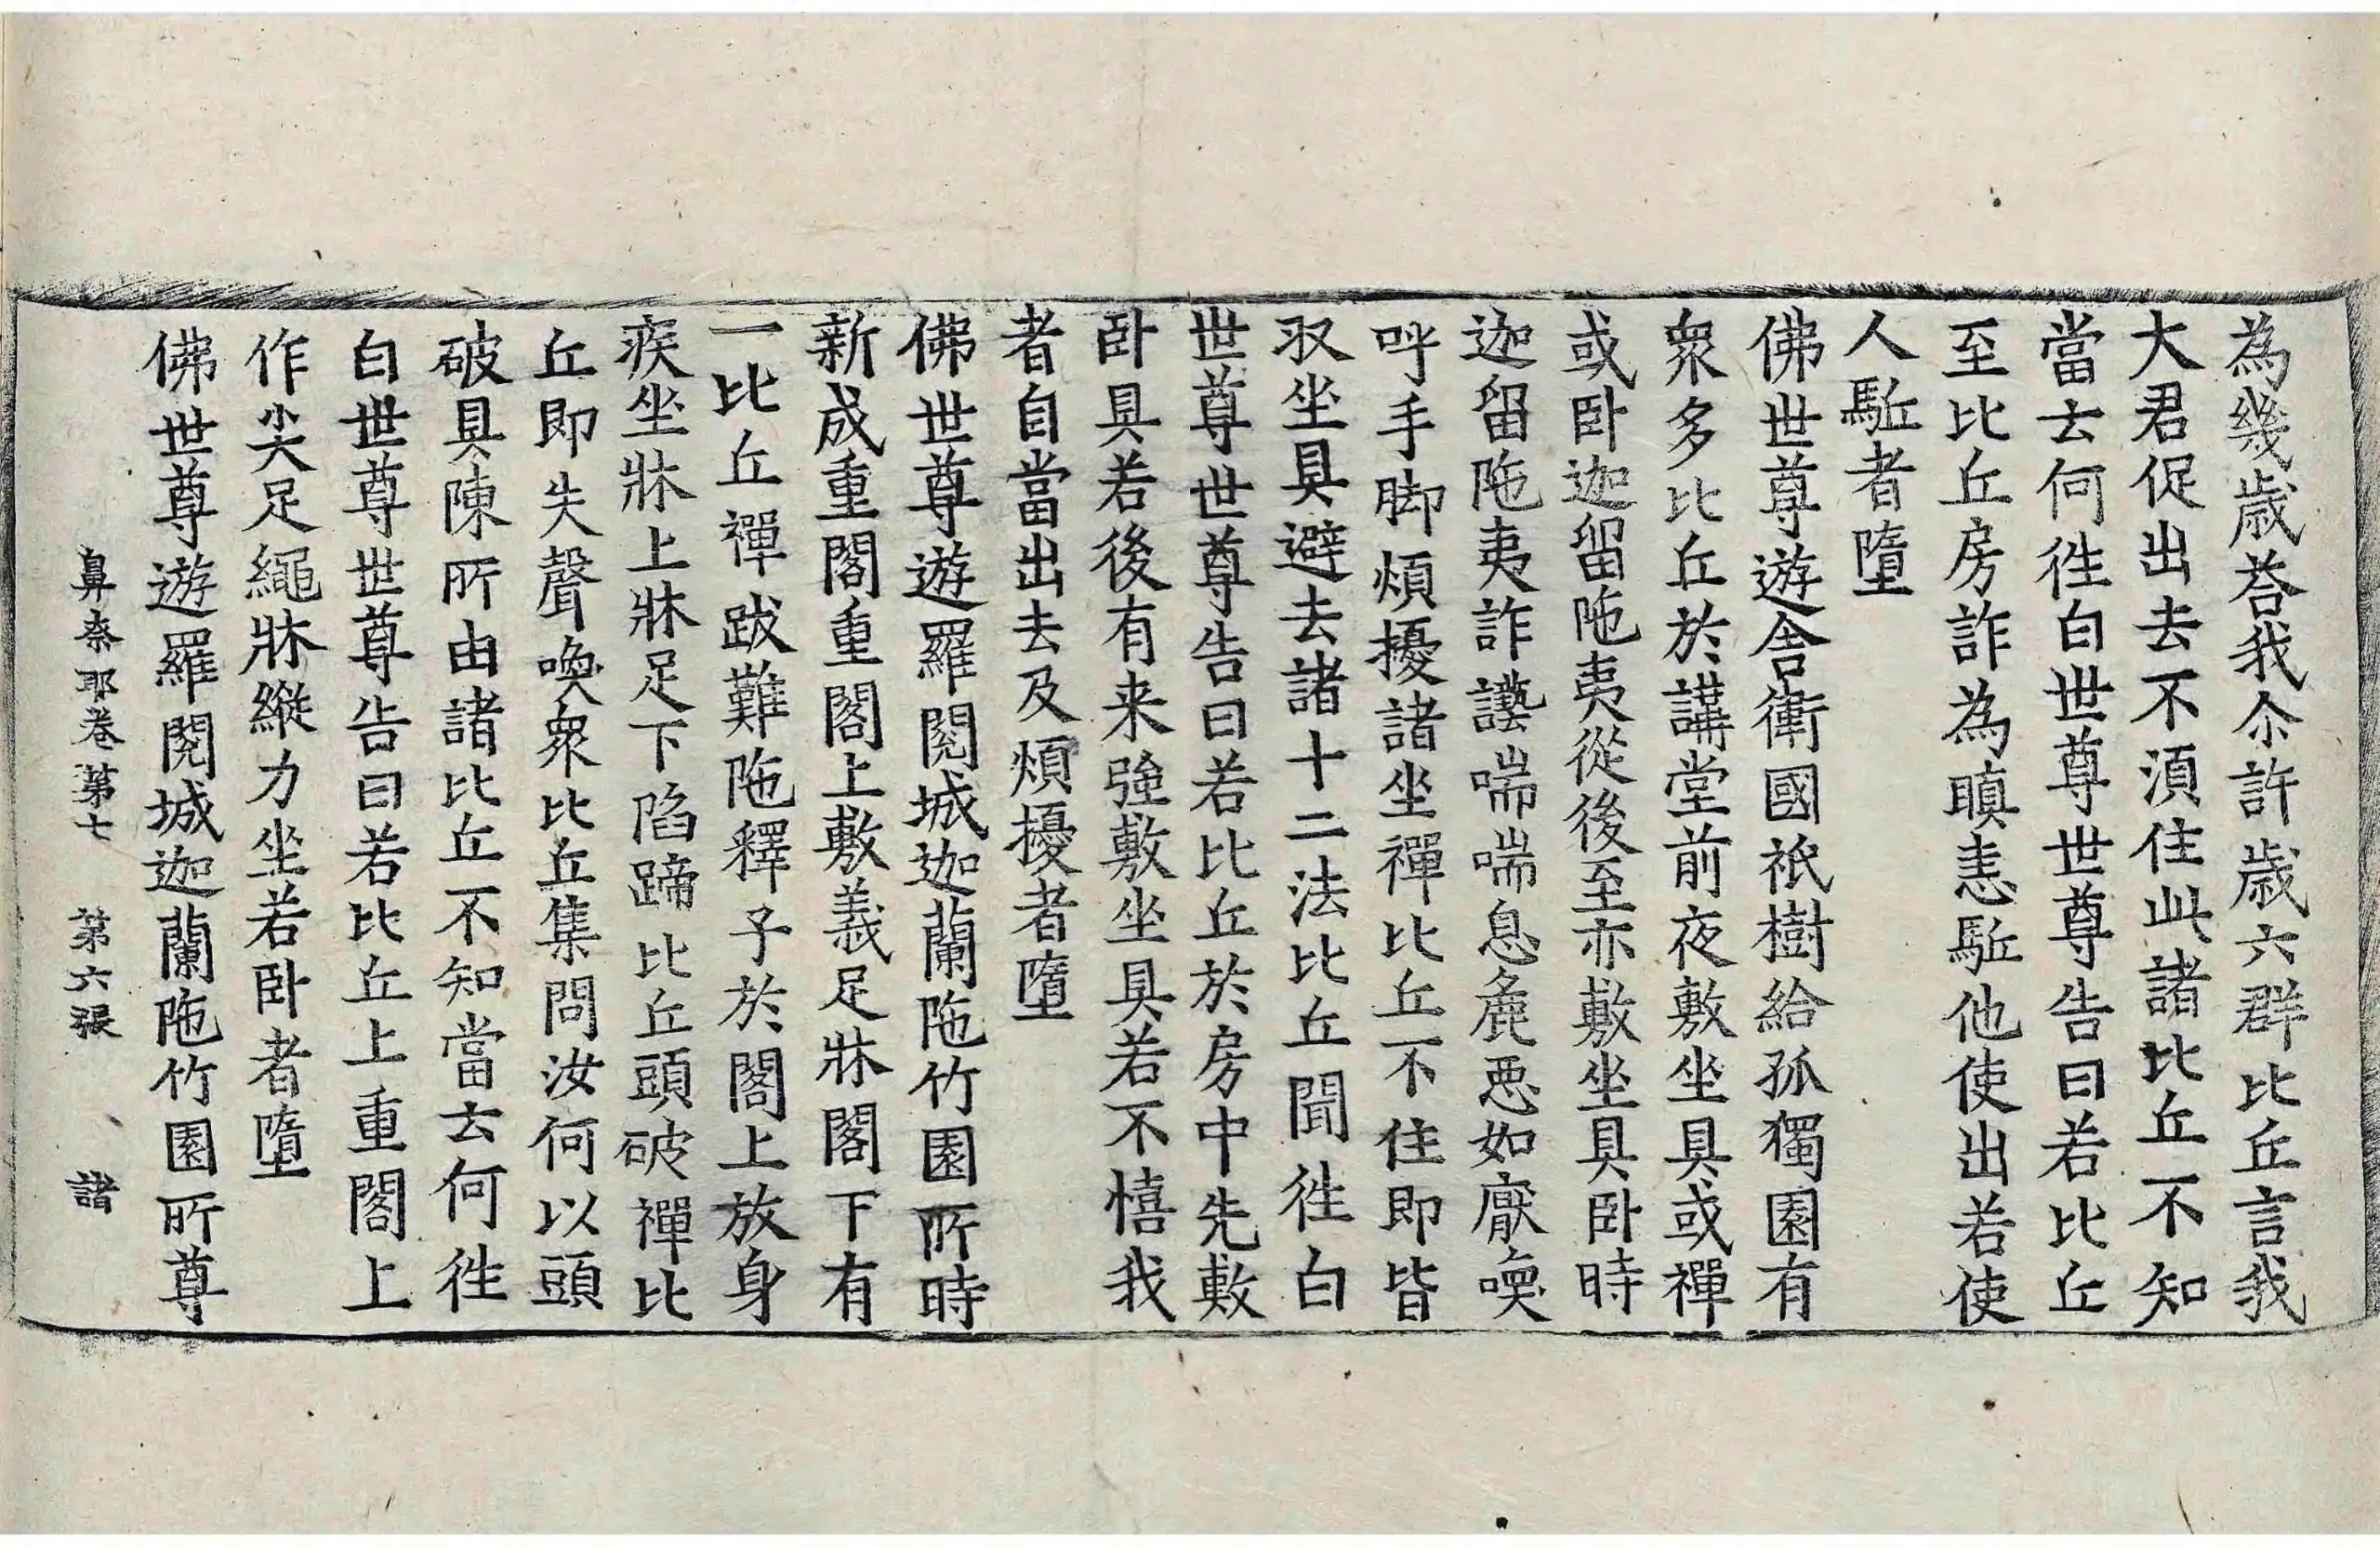 為幾歲荅我尒許歲六群比丘言我
大君促出去不湏住此諸比丘不知
當去何徃白世尊世尊告曰若比丘
至比丘房詐為瞋恚駈他使出若使
人駈者墮
佛世尊遊舎衛國祇樹給孤獨園有
衆多比丘於講堂前夜敷坐具或禪
或卧迦留陁夷從後至亦敷坐具卧時
迦留陁夷詐讇喘喘息麁惡如厭喚
呼手脚煩擾諸坐禪比丘不住即皆
収坐具避去諸十二法比丘聞徃白
世尊世尊告曰若比丘於房中先敷
卧具若後有来強敷坐具若不憘我
者自當出去及煩擾者墮
佛世尊遊羅閱城迦蘭陁竹園所時
新成重閣重閣上敷義足牀閣下有
一比丘禪跋難陁釋子於閣上放身
疾坐牀上牀足下陷蹄比丘頭破禪比
丘即失聲喚衆比丘集問汝何以頭
破具陳所由諸比丘不知當去何徃
白世尊世尊告曰若比丘上重閣上
作尖足繩牀縱力坐若卧者墮
佛世尊遊羅閱城迦蘭陁竹園所尊
鼻奈耶卷第七 第六張 諸